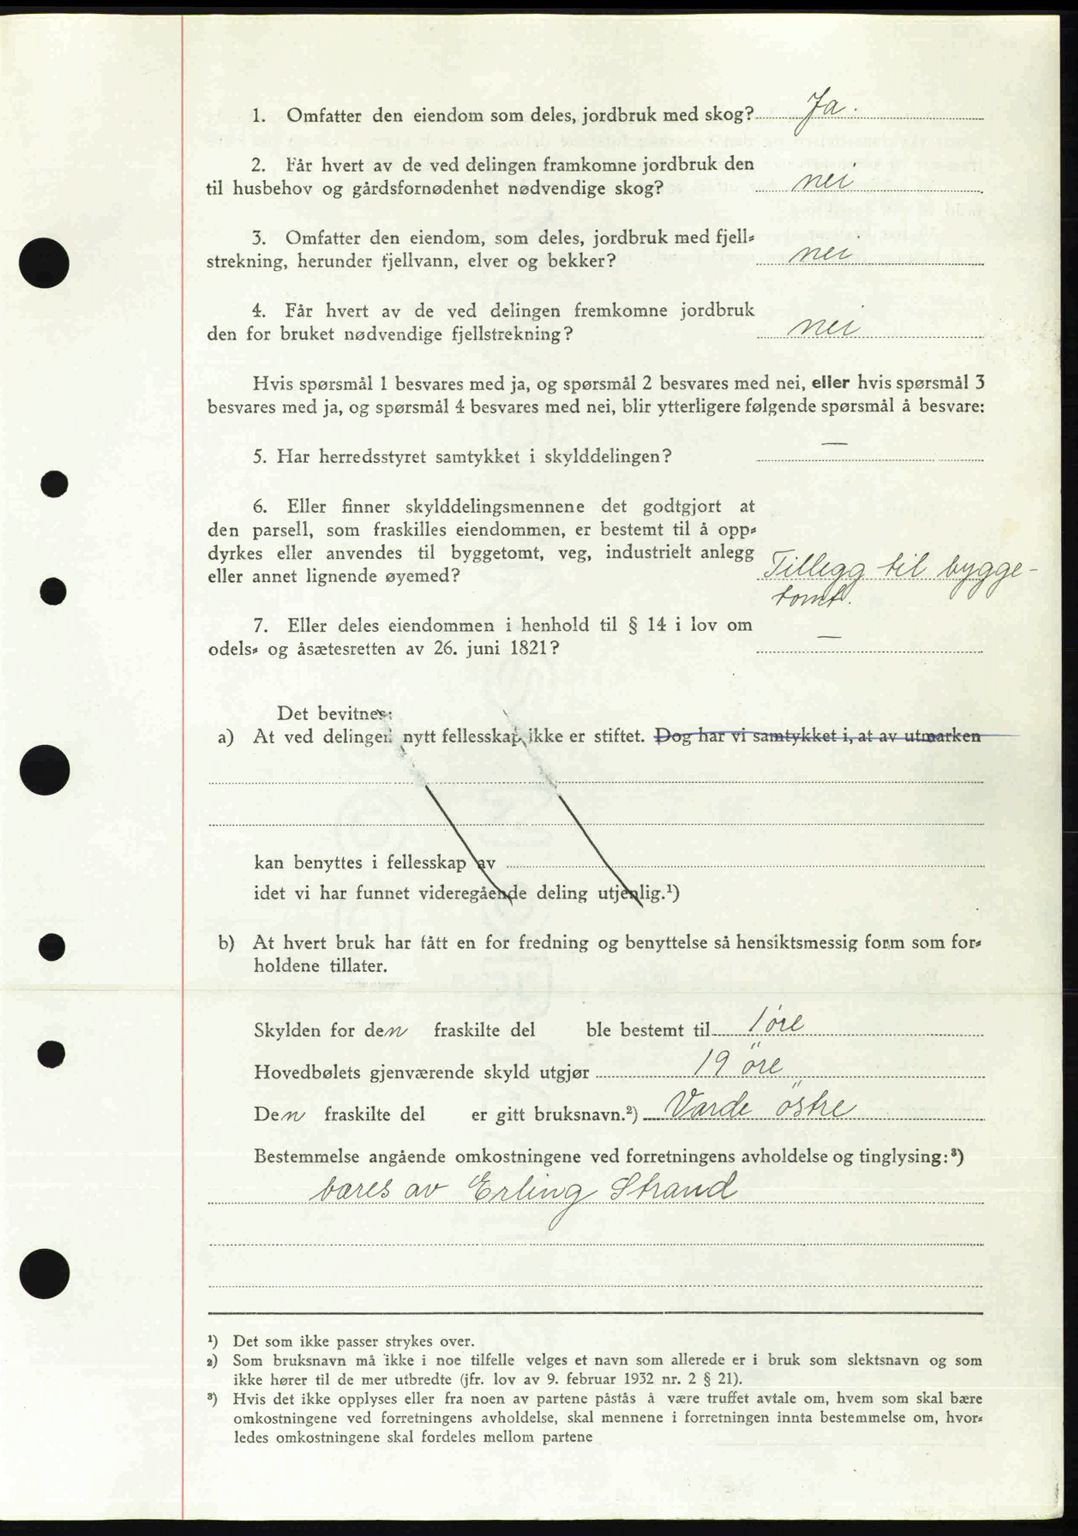 1. Omfatter den eiendom som deles, jordbruk med skog? Ja.
2. Får hvert av de ved delingen framkomne jordbruk den
til husbehov og gårdsfornødenhet nødvendige skog? nei
3. Omfatter den eiendom, som deles, jordbruk med fjell⸗
strekning, herunder fjellvann, elver og bekker? nei
4. Får hvert av de ved delingen fremkomne jordbruk
den for bruket nødvendige fjellstrekning? nei
Hvis spørsmål 1 besvares med ja, og spørsmål 2 besvares med nei, eller hvis spørsmål 3
besvares med ja, og spørsmål 4 besvares med nei, blir ytterligere følgende spørsmål å besvare:
5. Har herredsstyret samtykket i skylddelingen? —
6. Eller finner skylddelingsmennene det godtgjort at
den parsell, som fraskilles eiendommen, er bestemt til å opp⸗
dyrkes eller anvendes til byggetomt, veg, industrielt anlegg
eller annet lignende øyemed? Tillegg til bygge-
tomt.
7. Eller deles eiendommen i henhold til § 14 i lov om
odels⸗ og åsætesretten av 26. juni 1821? —
Det bevitnes:
a) At ved delingen nytt fellesskap ikke er stiftet. Dog har vi samtykket i, at av utmarken
kan benyttes i fellesskap av
idet vi har funnet videregående deling utjenlig.¹)
b) At hvert bruk har fått en for fredning og benyttelse så hensiktsmessig form som for⸗
holdene tillater.
Skylden for den fraskilte del ble bestemt til 1 öre
Hovedbølets gjenværende skyld utgjør 19 öre
Den fraskilte del er gitt bruksnavn.²) Varde östre
Bestemmelse angående omkostningene ved forretningens avholdelse og tinglysing:³)
bæres av Erling Strand
¹) Det som ikke passer strykes over.
²) Som bruksnavn må ikke i noe tilfelle velges et navn som allerede er i bruk som slektsnavn og som
ikke hører til de mer utbredte (jfr. lov av 9. februar 1932 nr. 2 § 21).
³) Hvis det ikke opplyses eller fra noen av partene påstås å være truffet avtale om, hvem som skal bære
omkostningene ved forretningens avholdelse, skal mennene i forretningen innta bestemmelse om, hvor⸗
ledes omkostningene skal fordeles mellom partene